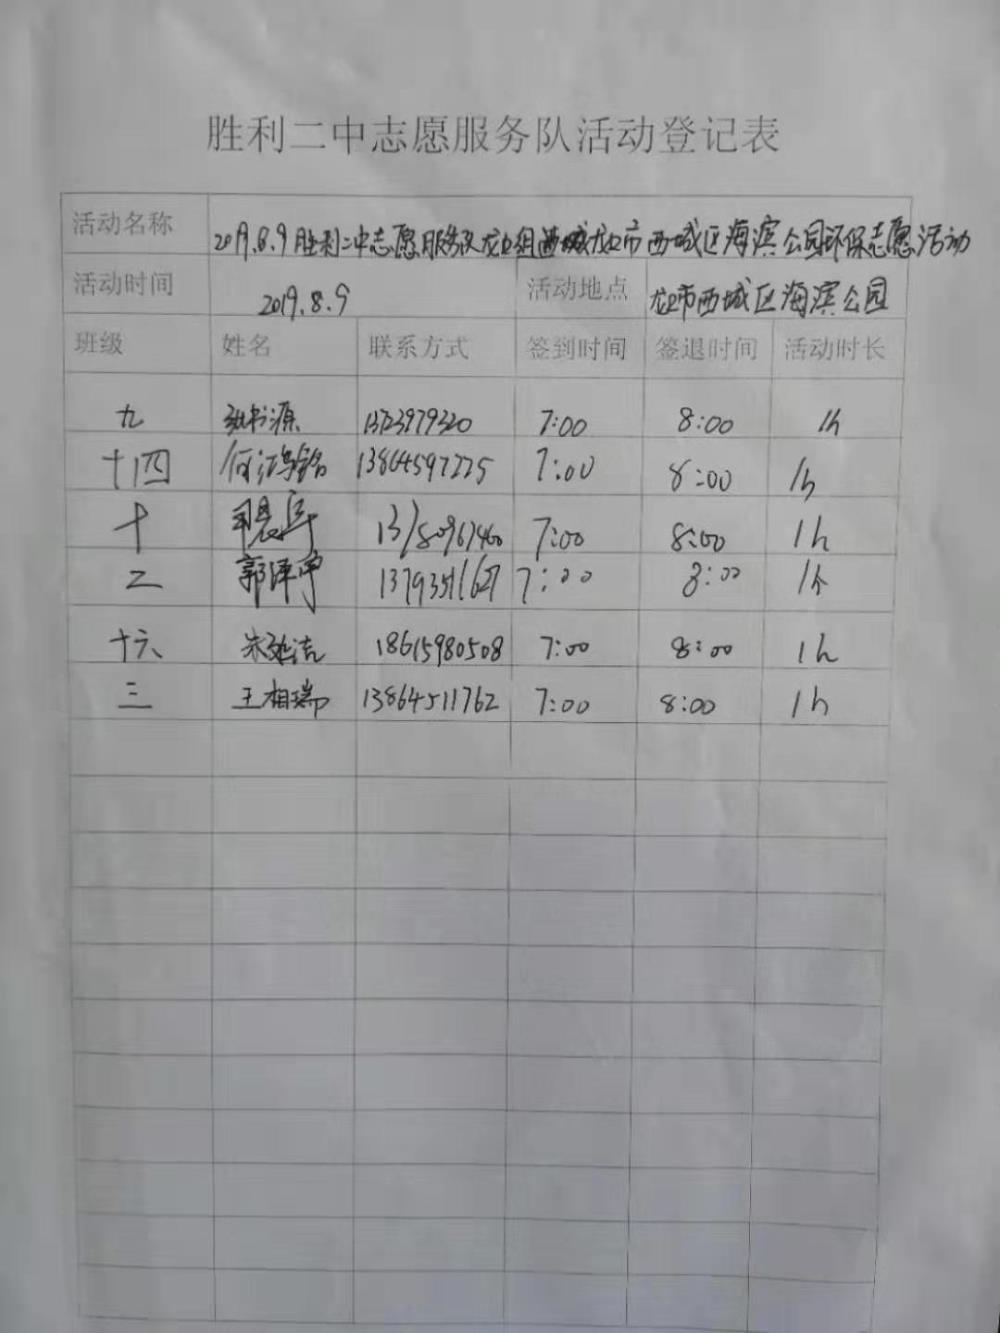 胜利二中志愿服务队活动登记表
活动名称 2019.8.9胜利二中志愿服务队龙口组 龙口市西城区海滨公园环保志愿活动
活动时间 2019.8.9 活动地点 龙口市西城区海滨公园
班级 姓名 联系方式 签到时间 签退时间 活动时长
九 源 7:00 8:00 1h
十四 何 铭 13864597225 7:00 8:00 1h
十 司晨 7:00 8:00 1h
二 郭泽宇 13793511627 7:00 8:00 1h
十六 朱 洁 18615980508 7:00 8:00 1h
三 王相瑞 13864511762 7:00 8:00 1h